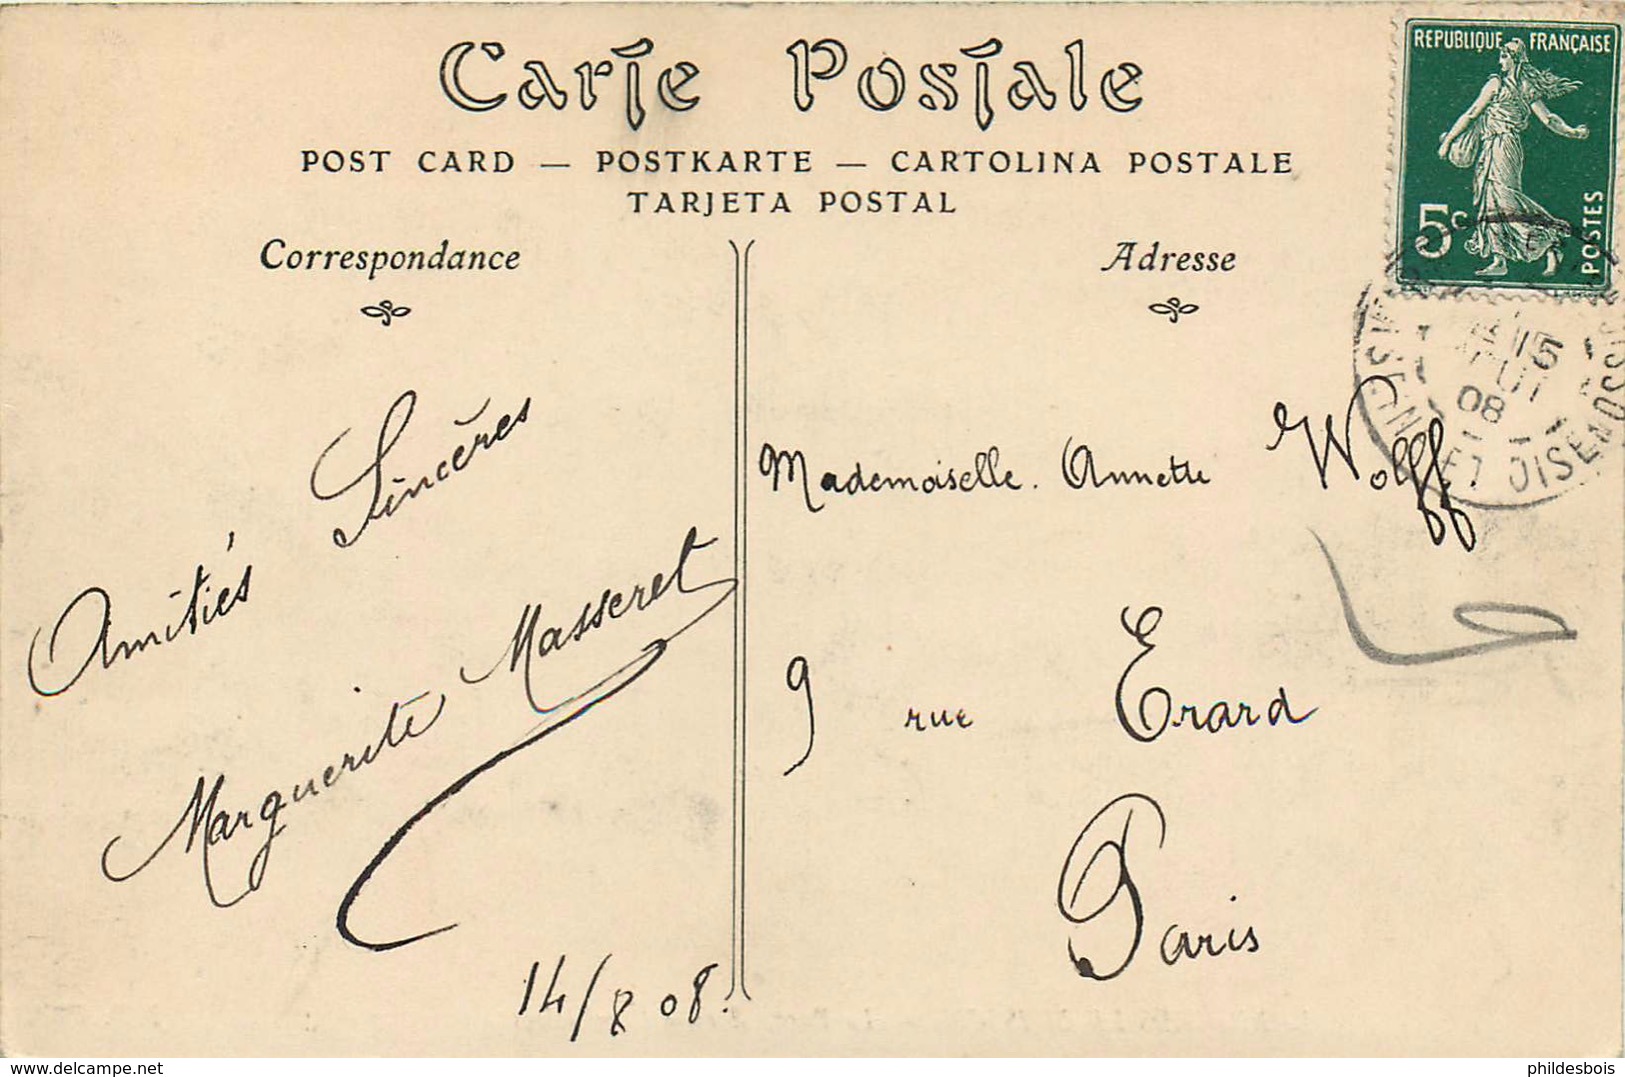 Carte Postale
POST CARD — POSTKARTE — CARTOLINA POSTALE
TARJETA POSTAL
Correspondance
Adresse
REPUBLIQUE FRANÇAISE
5c
POSTES
15
08
Amitiés Sincères
Marguerite Masseret
14/8 08.
Mademoiselle. Annette Wolff
9 rue Erard
Paris
www.delcampe.net
phildesbois